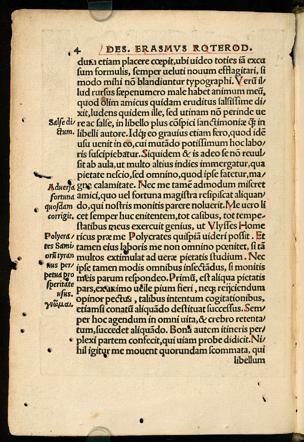 4 DES. ERASMVS ROTEROD.
dum etiam placere cœpit, ubi video toties iã excu
sum formulis, semper ueluti nouum efflagitari, si
modo mihi nõ blandiuntur typographi. Verũ il/
lud rursus sæpenumero male habet animum meũ,
quod olim amicus quidam eruditus salsissime di/
xit, ludens quidem ille, sed utinam nõ perinde ue
Salse di/ re ac false, in libello plus cõspici sanctimoniæ q̃ in
ctum. libelli autore. Idq̃ eo grauius etiam fero, quod idẽ
usu uenit in eo, cui mutãdo potissimum hoc labo/
ris suscipiebatur. Siquidem &amp; is adeo se nõ reuul
sit ab aula, ut multo altius indies immergatur, qua
pietate nescio, sed omnino, quod ipse fatetur, ma/
Aduersa gne calamitate. Nec me tamẽ admodum miseret
fortuna amici, quo uel fortuna magistra respiscat aliquan/
quosdã do, qui nostris monitis parere noluerit. Me uero li
corrigit. cet semper huc enitentem, tot casibus, tot tempe/
statibus meus exercuit genius, ut Vlysses Home
Polycra/ ricus præ me Polycrates quispiã uideri possit. Et
tes Sami/ tamen eius laboris me non omnino pœnitet, si tã
orũ tyran multos extimulat ad ueræ pietatis studium. Nec
nus per/ ipse tamen modis omnibus insectãdus, si monitis
petua pro meis parum respondeo. Primũ, est aliqua pietatis
speritate pars, ex animo uelle pium fieri, neq̃ reijciendum
usus. opinor pectus, talibus intentum cogitationibus,
etiamsi conatũ aliquãdo destituat successus. Sem/
per hoc agendum in omni uita, &amp; crebro retenta/
tum, succedet aliquãdo. Bona autem itineris per/
plexi partem confecit, qui uiam probe didicit. Ni/
hil igitur me mouent quorundam scommata, qui
libellum